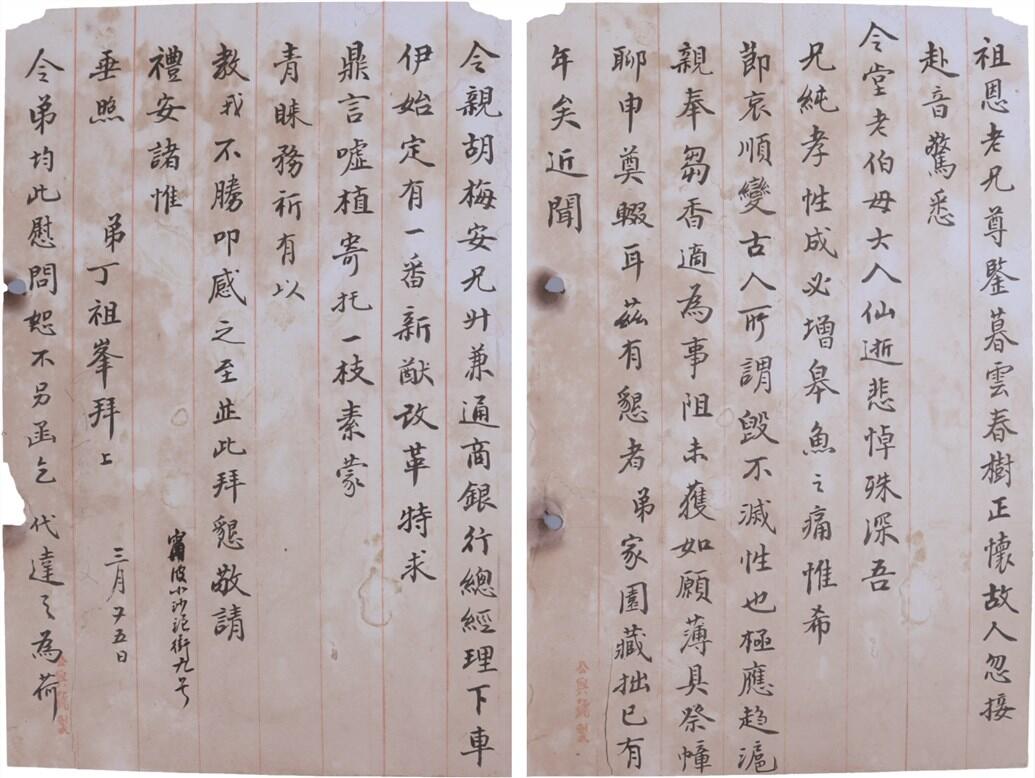 祖恩老兄尊鑒暮雲春樹正懷故人忽接
赴音驚悉
令堂老伯母大人仙逝悲悼殊深吾
兄純孝性成必增皋魚之痛惟希
節哀順變古人所謂毀不滅性也極應趋滬
親奉芻香適為事阻未獲如願薄具祭幛
聊申奠輟耳茲有懇者弟家園藏拙已有
年矣近聞
令親胡梅安兄升兼通商銀行總經理下車
伊始定有一番新猷改革特求
鼎言噓植寄托一枝素蒙
青睐務祈有以
教我不勝叩感之至耑此拜懇敬請
禮安諸惟
垂照
弟丁祖峯拜上
甯波小沙泥街九号
三月廿五日
令弟均此慰問恕不另函乞代達之為荷